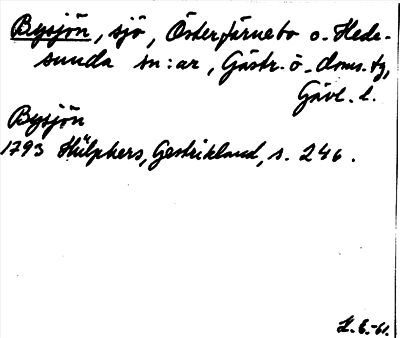 Bysjön, sjö, Österfärnebo o. Hede-
sunda sn:ar, Gästr. ö. doms. tg,
Gävl. l.
Bysjön
1793 Hülphers, Gestrikland, s. 246.
-61.